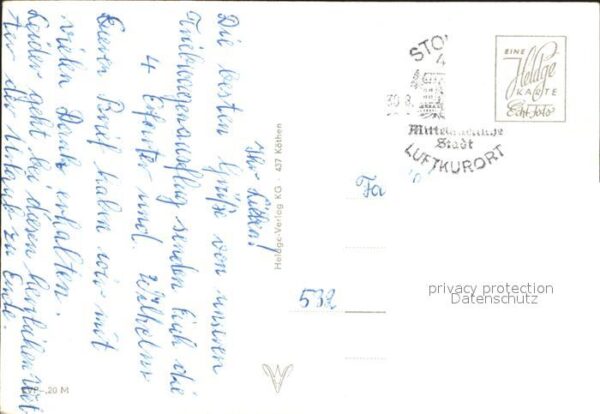 Ihr Lieben!
Die besten Grüße von unserem
Trabrennausflug senden Euch die
4 Erfurter und Wilhelm
Eueren Brief haben wir mit
vielen Dank erhalten.
Leider geht bei diesem herrlichen Wet-
ter der Urlaub zu Ende.
Heldge-Verlag KG 437 Köthen
-,20 M
STO
30.8.
Mittelalterliche
Stadt
LUFTKURORT
EINE
Heldge
KARTE
Echt foto
Fa
532
privacy protection
Datenschutz